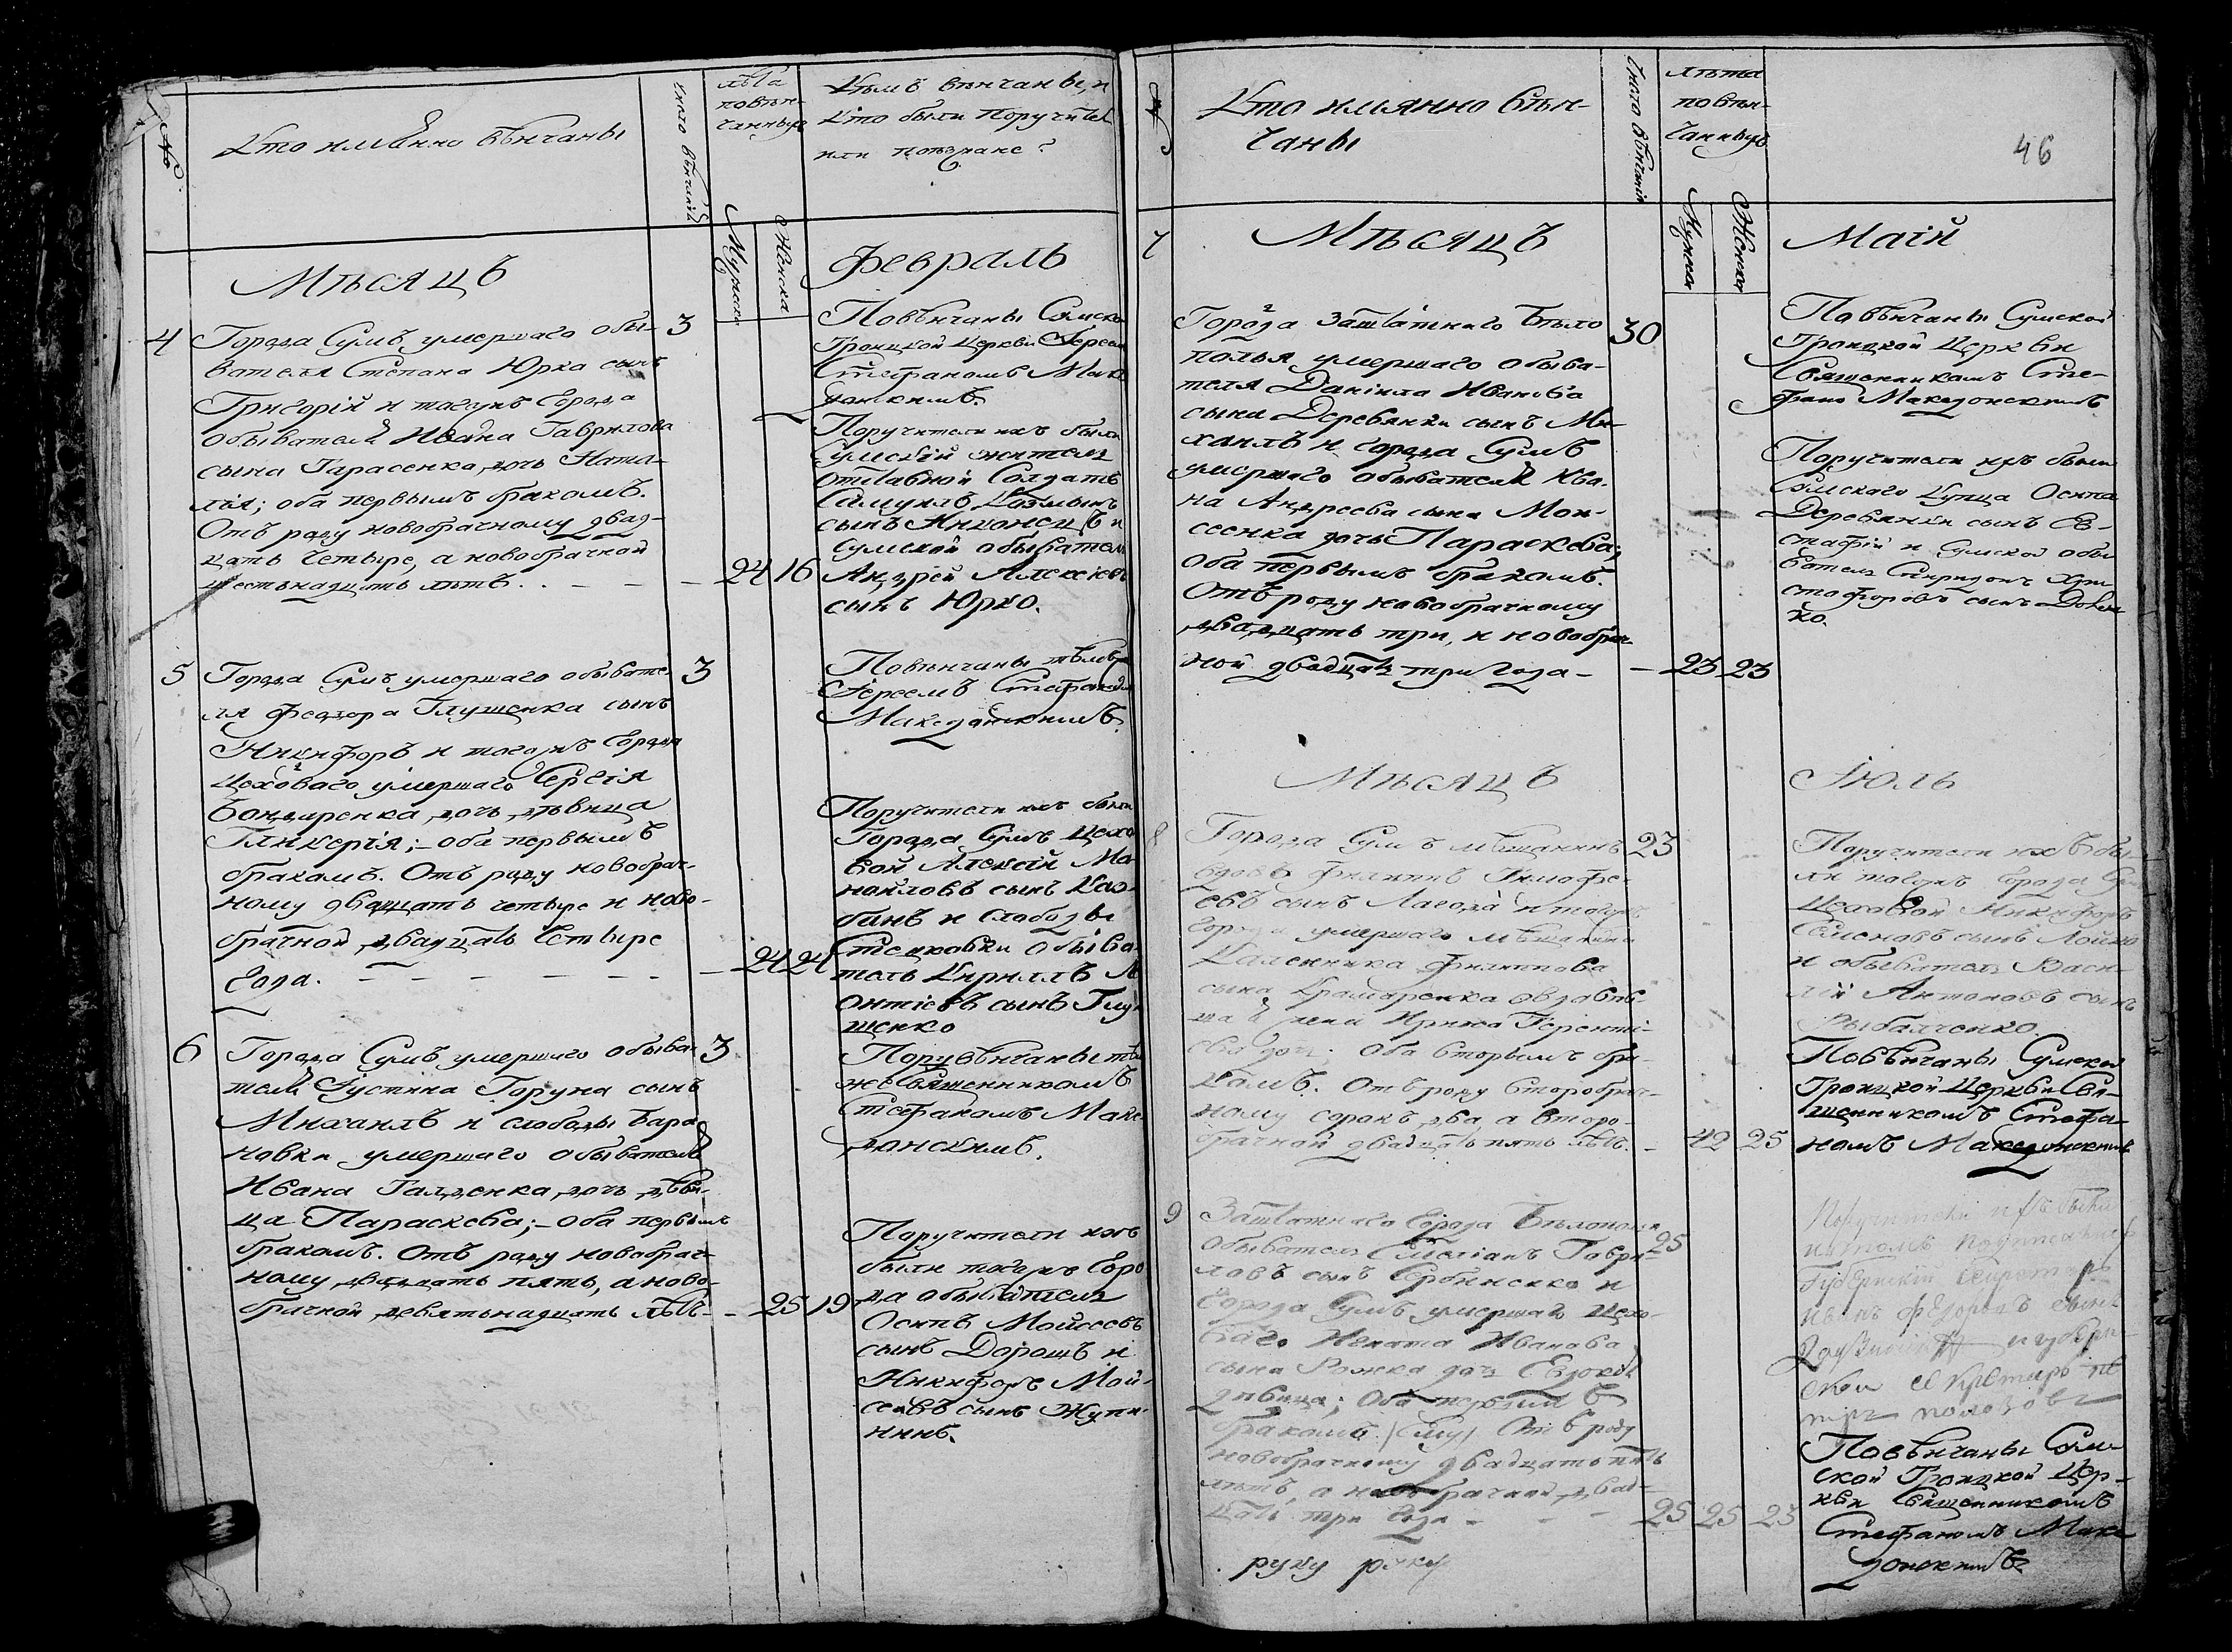 №
Кто имянно вѣнчаны
Число вѣнчанія
лѣта
повѣн-
чанныхъ
Мужеска
Женска
Кѣмъ вѣнчаны, и
кто были Поручители
или поѣзжане?
Мѣсяцъ
Февраль
4
Города Сумъ умершаго обы-
вателя Степана Юрка сынъ
Григорій и тогожъ города
обывателя Ивана Гаврилова
сына Тарасенка дочь Ната-
лія; оба первымъ бракомъ.
Отъ роду новобрачному двад-
цать четыре, а новобрачной
шестьнадцать лѣтъ.
3
24 16
Повѣнчаны Сумско
Троицкой церкви Іерее
Стефаномъ Маке
донскимъ.
Поручители ихъ были
Сумскій житель
отставной Солдатъ
Самуилъ
сынъ и
сумской обыватель
Андрей Алексіевъ
сынъ Юрко.
5
Города Сумъ умершаго обывате-
ля Федора Глущенка сынъ
Никифоръ и тогожъ города
цеховаго умершаго Сергія
Бондаренка дочь дѣвица
Гликерія; - оба первымъ
бракомъ. Отъ роду новобрач-
ному двадцать четыре и ново-
брачной двадцать четыре
года.
3
24 24
Повѣнчаны
Іереемъ Стефаном
Македонскимъ.
Поручители ихъ были
города Сумъ цехо
вой Алексій Ма-
нойловъ сынъ Каз-
банъ и слободы
Степановки обыва-
тель Кириллъ Л
онтіевъ сынъ Глу
щенко
6
Города Сумъ умершаго обыва-
теля Іустина Горуна сынъ
Михаилъ и слободы Бара-
новки умершаго обывателя
Ивана Галденка дочь дѣви-
ца Параскева; - оба первымъ
бракомъ. Отъ роду новобрач-
ному двадцать пять, а ново-
брачной девятьнадцать лѣтъ
3
25 19
Повѣнчаны тѣм
же Священникомъ
Стефаномъ Маке
донскимъ.
Поручители ихъ
были тогожъ горо
да обыватели
Осипъ Мойсеевъ
сынъ Дорошъ и
Никифоръ Мой-
сеевъ сынъ Жупи-
нинъ.
46
№
Кто имянно вѣн-
чаны
Число вѣнчанія
лѣта
повѣн-
чанныхъ
Мужеска
Женска
Мѣсяцъ
Маій
7
Города Заштатнаго Бѣло
полья умершаго обыва-
теля Даніила Иванова
сына Деревянки сынъ Ми-
хаилъ и города Сумъ
умершаго обывателя Ива-
на Андреева сына Мои-
сеенка дочь Параскева;
оба первымъ бракомъ.
Отъ роду новобрачному
двадцать три, и новобрач-
ной двадцать три года -
30
23 23
Повѣнчаны Сумской
Троицкой Церкви
Священникомъ Сте-
фано Македонскимъ
Поручители ихъ были
Сумскаго купца Осипа
Деревянки сынъ Ев-
стафій и Сумской обы
ватель Спиридонъ Хри
стофоровъ сынъ
ко.
Мѣсяцъ
Іюль
8
Города Сумъ мѣщанинъ
вдовъ Филиппъ Тимофе-
евъ сынъ Лагода и тогожъ
города умершаго мѣщанина
Калинника Филиппова
сына Крамаренка овдовѣв-
шая жена Ирина Теренті-
ева дочь; Оба вторымъ бра-
комъ. Отъ роду второбрач-
ному сорокъ два, а второ-
брачной двадцать пять лѣтъ. -
23
42 25
Поручители ихъ бы-
ли тогожъ города Сум
цеховой Никифоръ
Семеновъ сынъ
и обыватель Васи-
лій Антоновъ сынъ
Рыбалченко
Повѣнчаны Сумской
Троицкой Церкви Свя-
щенникомъ Стефа-
номъ Македонскимъ
9
Заштатнаго города Бѣлополья
обыватель Гаври-
ловъ сынъ Сербиненко и
города Сумъ умершаго цехо-
ваго Игната Иванова
сына Рожка дочь Евдокія
дѣвица; Оба первымъ
бракомъ. /Ему/ Отъ роду
новобрачному двадцать пять
лѣтъ, а новобрачной двад-
цать три года -
25
25 25 23
руку руку
Поручители ихъ были
Губернскій секретарь
Иванъ Федоровъ сынъ
и губерн-
скои секретарь пе
тръ половъ
Повѣнчаны Сум-
ской Троицкой Цер-
кви Священникомъ
Стефаномъ Маке
донскимъ